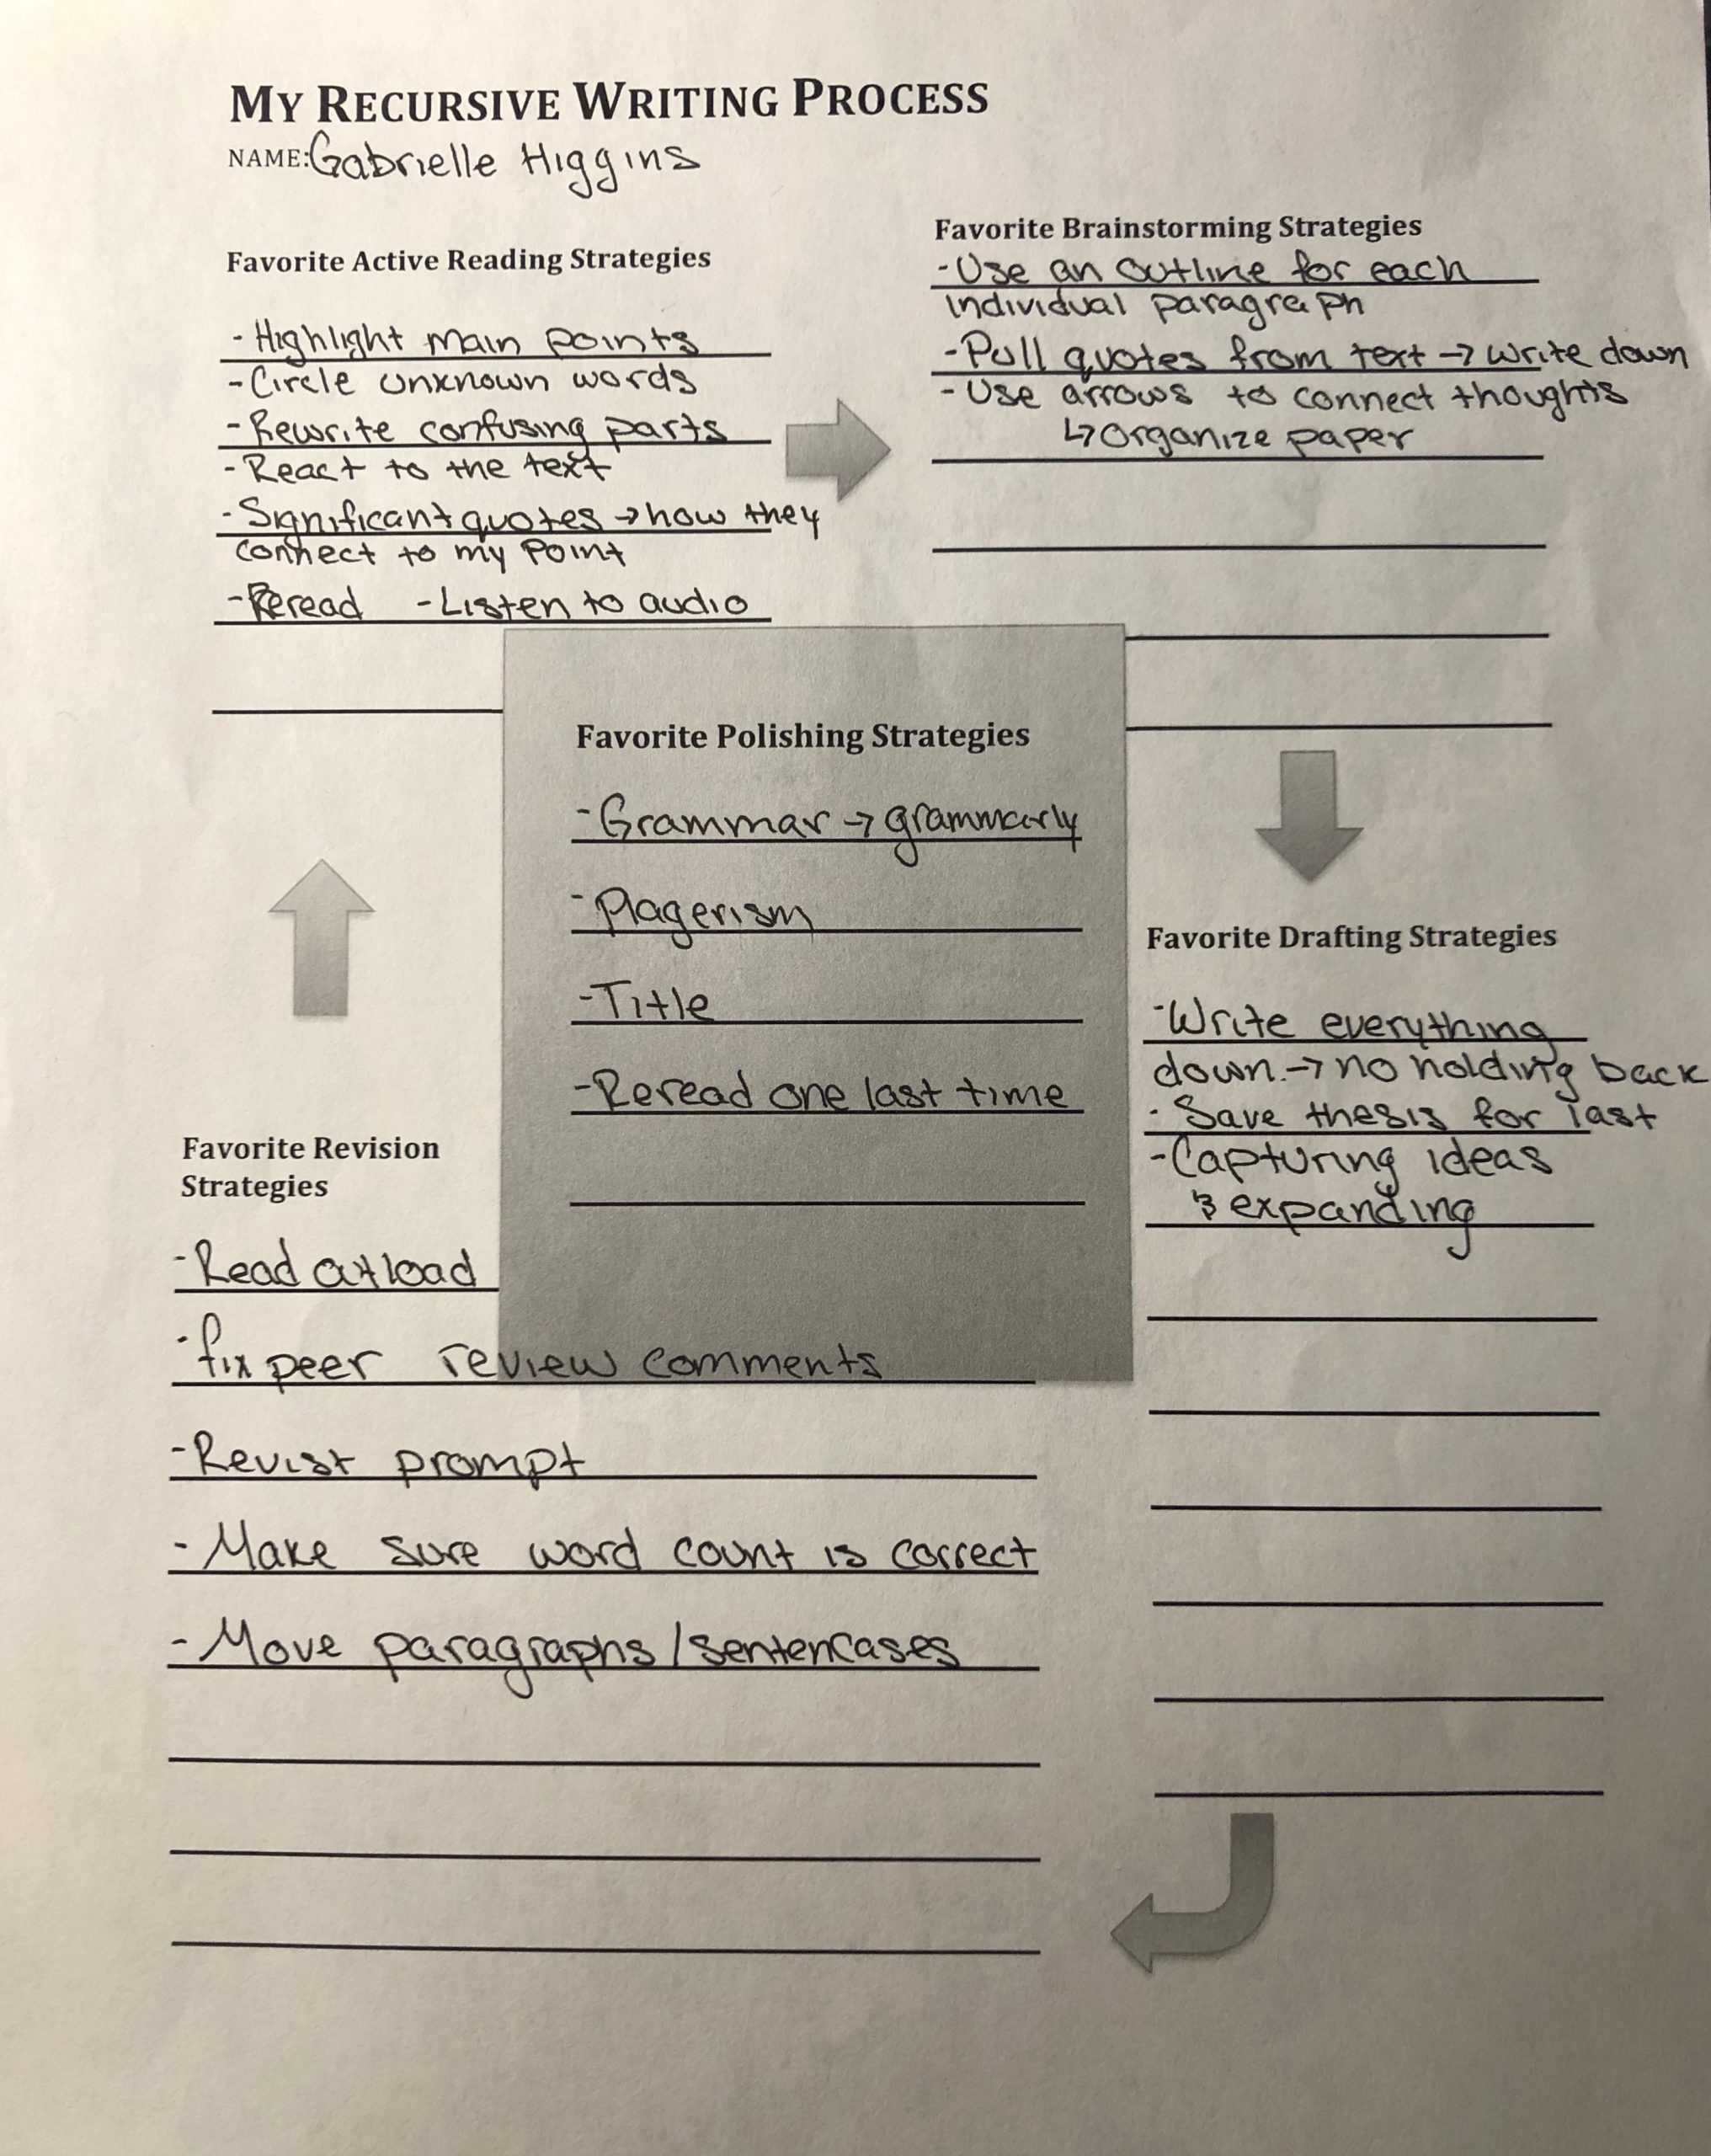 MY RECURSIVE WRITING PROCESS
NAME: Gabrielle Higgins
Favorite Active Reading Strategies
- Highlight main points
- Circle unknown words
- Rewrite confusing parts
- React to the text
- Significant quotes → how they
connect to my point
- Reread - Listen to audio
Favorite Brainstorming Strategies
- Use an outline for each
individual paragraph
- Pull quotes from text → write down
- Use arrows to connect thoughts
↳ organize paper
Favorite Drafting Strategies
- Write everything
down. → no holding back
- Save thesis for last
- Capturing ideas
& expanding
Favorite Revision
Strategies
- Read
- fix peer review comments
- Revist prompt
- Make sure word count is correct
- Move paragraphs/
Favorite Polishing Strategies
- Grammar → grammarly
- Plagerism
- Title
- Reread one last time